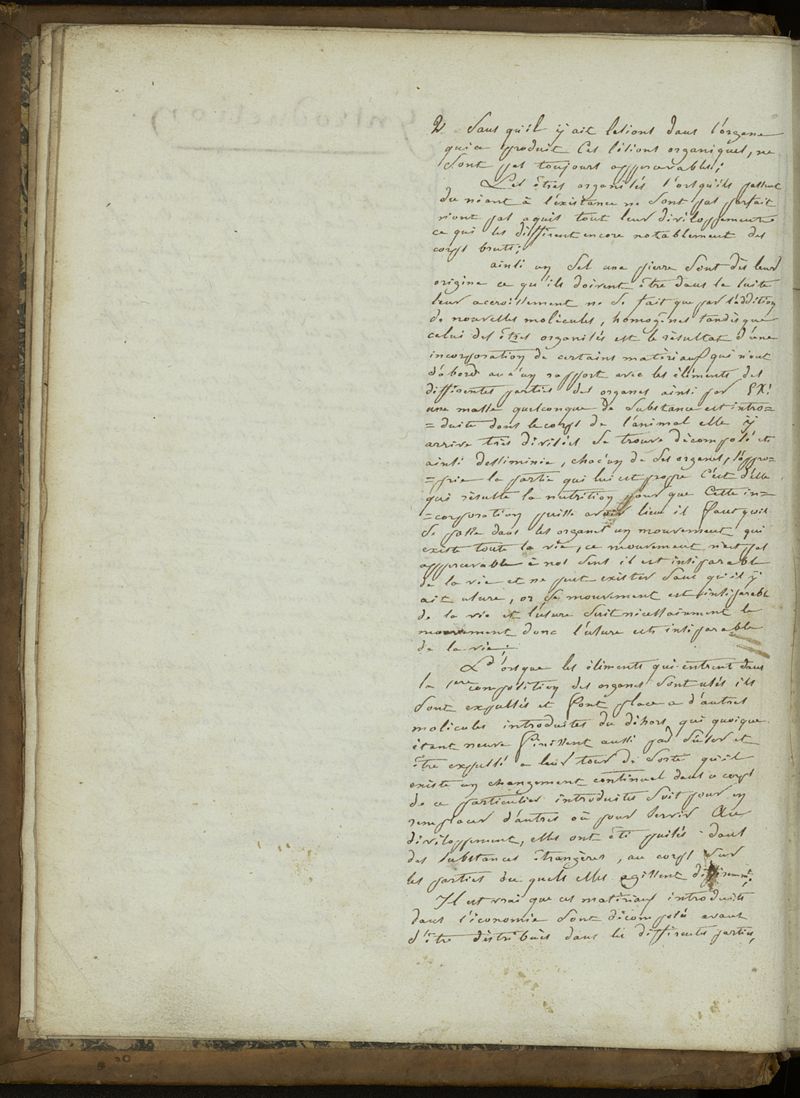 2 Sans qu'il y ait lesions dans l'organe
qui a produit Ces lésions organiques, ne
Sont pas toujours appercevables;
Les êtres organisés l'orsqu'ils passent
du néant à l'éxistance ne sont pas parfait
n'ont pas aquis tout leur diveloppement
ce qui les different encore notablement des
corps bruts;
ainsi un Sel une pierre sont dès leur
origine ce qu'ils doivent être dans la suite
leur accroissement ne se fait que par l'addition
de nouvelles molécules, homogènes tandis que
celui des êtres organisés est le résultat d'une
incorporation de certains matériaux qui n'ont
d'abord aucun rapport avec les éléments des
differentes parties des organes ainsi par EX:
une masse quelconque de Substance est intro=
=duite dans le corps de l'animal elle y
arrive très divisées Se trouve décomposé et
ainsi desseminée, chacun de Ses organes, s'appro=
=prie la partie qui lui est propre C'est d'elle
qui résulte la nutrition pour que Cette in=
=corporation puisse avoir lieu il faut qu'il
Se passe dans les organes un mouvement qui
existe toute la vie, ce mouvement n'est pas
appercevable à nos Sens il est inséparable
de la vie et ne peut exister Sans qu'il y
ait usure, or ce mouvement est inséparable
de la vie et l'usure Suit nécessairement le
mouvement donc l'usure est inséparable
de la vie;
L'orsque les éléments qui entrent dans
la 1ere composition des organes Sont usés ils
Sont expulsés et font place a d'autres
molécules introduites du dehors, qui quoique
étant neuve finissent aussi par S'user et
être expulsé a leur tour de Sorte qu'il
existe un changement continuel dans ce corps
de ce particulier introduites Soit pour en
remplacer d'autres où pour Servir Au
diveloppement, elles ont été puisés dans
des Substances étrangères, au corps Sur
les parties du quels elles agissent
Il est vrai que ces matériaux introduits
dans l'économie Sont décomposés avant
d'être distribués dans les differentes parties,